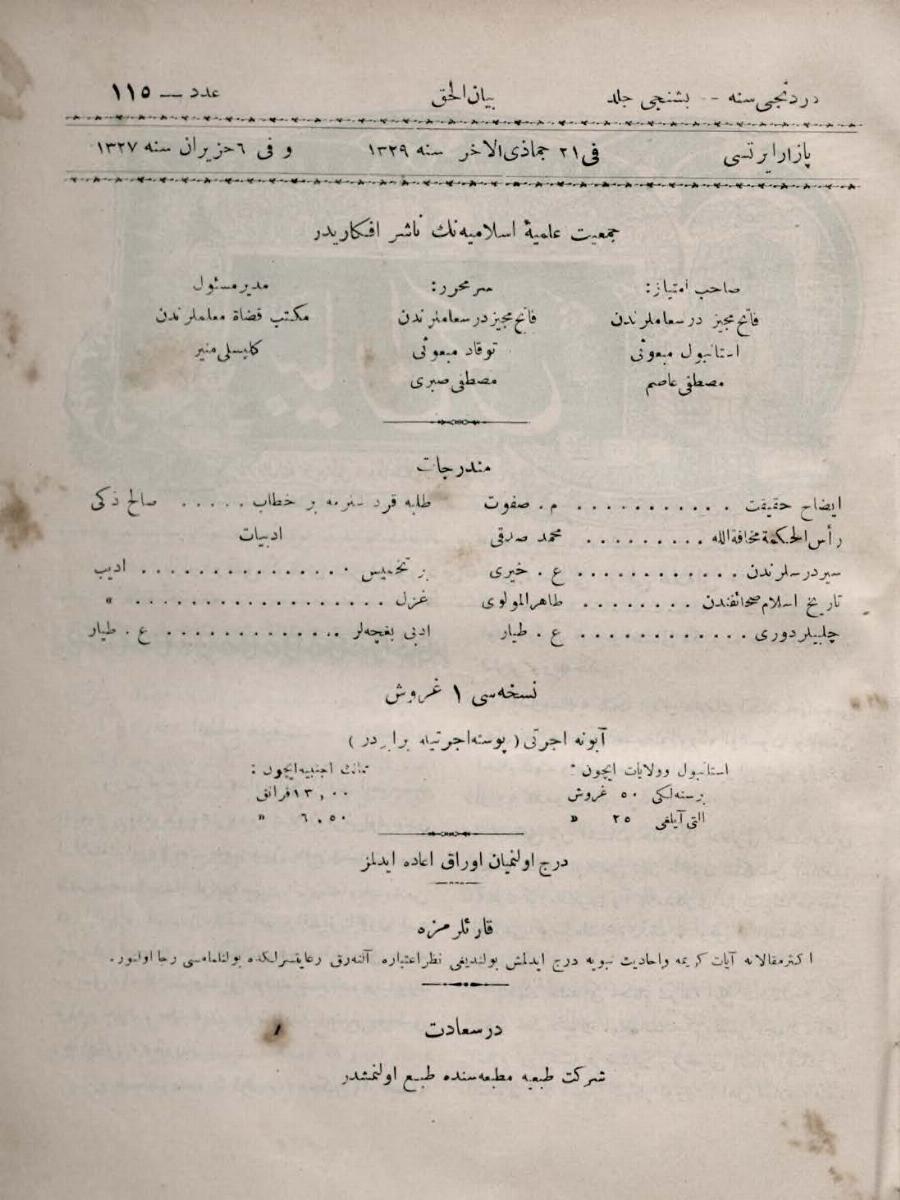 دردنجی سنه -- بشنجی جلد بیان الحق عدد — ١١٥
پازار ایرتسی فی ٢١ جماذی الاخر سنه ١٣٢٩ و فی ٦ حزیران سنه ١٣٢٧
جمعیت علمیۀ اسلامیه‌نك ناشر افكاریدر
صاحب امتیاز: سر محرر: مدیر مسئول
فاتح مجیز درسعاملرندن فاتح مجیز درسعاملرندن مكتب قضاة معلملرندن
استانبول مبعوثی توقاد مبعوثی كلیسلی منیر
مصطفی عاصم مصطفی صبری
مندرجات
ایضاح حقیقت . . . . . . . . . . . م . صفوت
رأس الحكمة مخافة الله . . . . . . . . . محمد صدقی
سیر درسلرندن . . . . . . . . . . . . ع . خیری
تاریخ اسلام صحائفندن . . . . . . . . طاهر المولوی
چلبیلر دوری . . . . . . . . . . . . ع . طیار
طلبه بر خطاب . . . . . صالح ذكی
ادبیات
بر تخمیس . . . . . . . . . . . . . . ادیب
غزل . . . . . . . . . . . . . . . . . «
ادبی بغچه‌لر . . . . . . . . . . . . ع . طیار
نسخه‌سی ١ غروش
آبونه اجرتی ( پوسته اجرتیله برابردر )
استانبول وولایات ایچون : ممالك اجنبیه ایچون :
بر سنه‌لكی ٥٠ غروش ١٣,٠٠ فرانق
التی آیلغی ٢٥ « ٦,٥٠ «
درج اولنمیان اوراق اعاده ایدلمز
قارئلرمزه
اكثر مقالاته آیات كریمه واحادیث نبویه درج ایدلمش بولندیغی نظر اعتباره آلنه‌رق رعایتسزلكده بولنلمامسی رجا اولنور.
درسعادت
شركت طبعیه مطبعه‌سنده طبع اولنمشدر